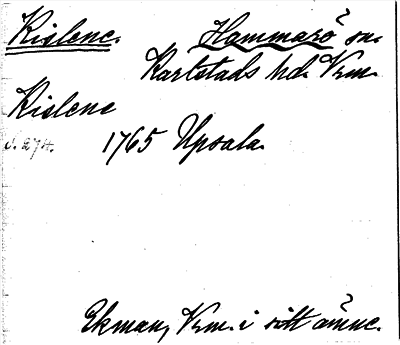 Kislene. Hammarö sn.
Karlstads hd. Vrm.
Kislene
S. 274. 1765 Upsala.
Ekman, Vrm. i sitt ämne.